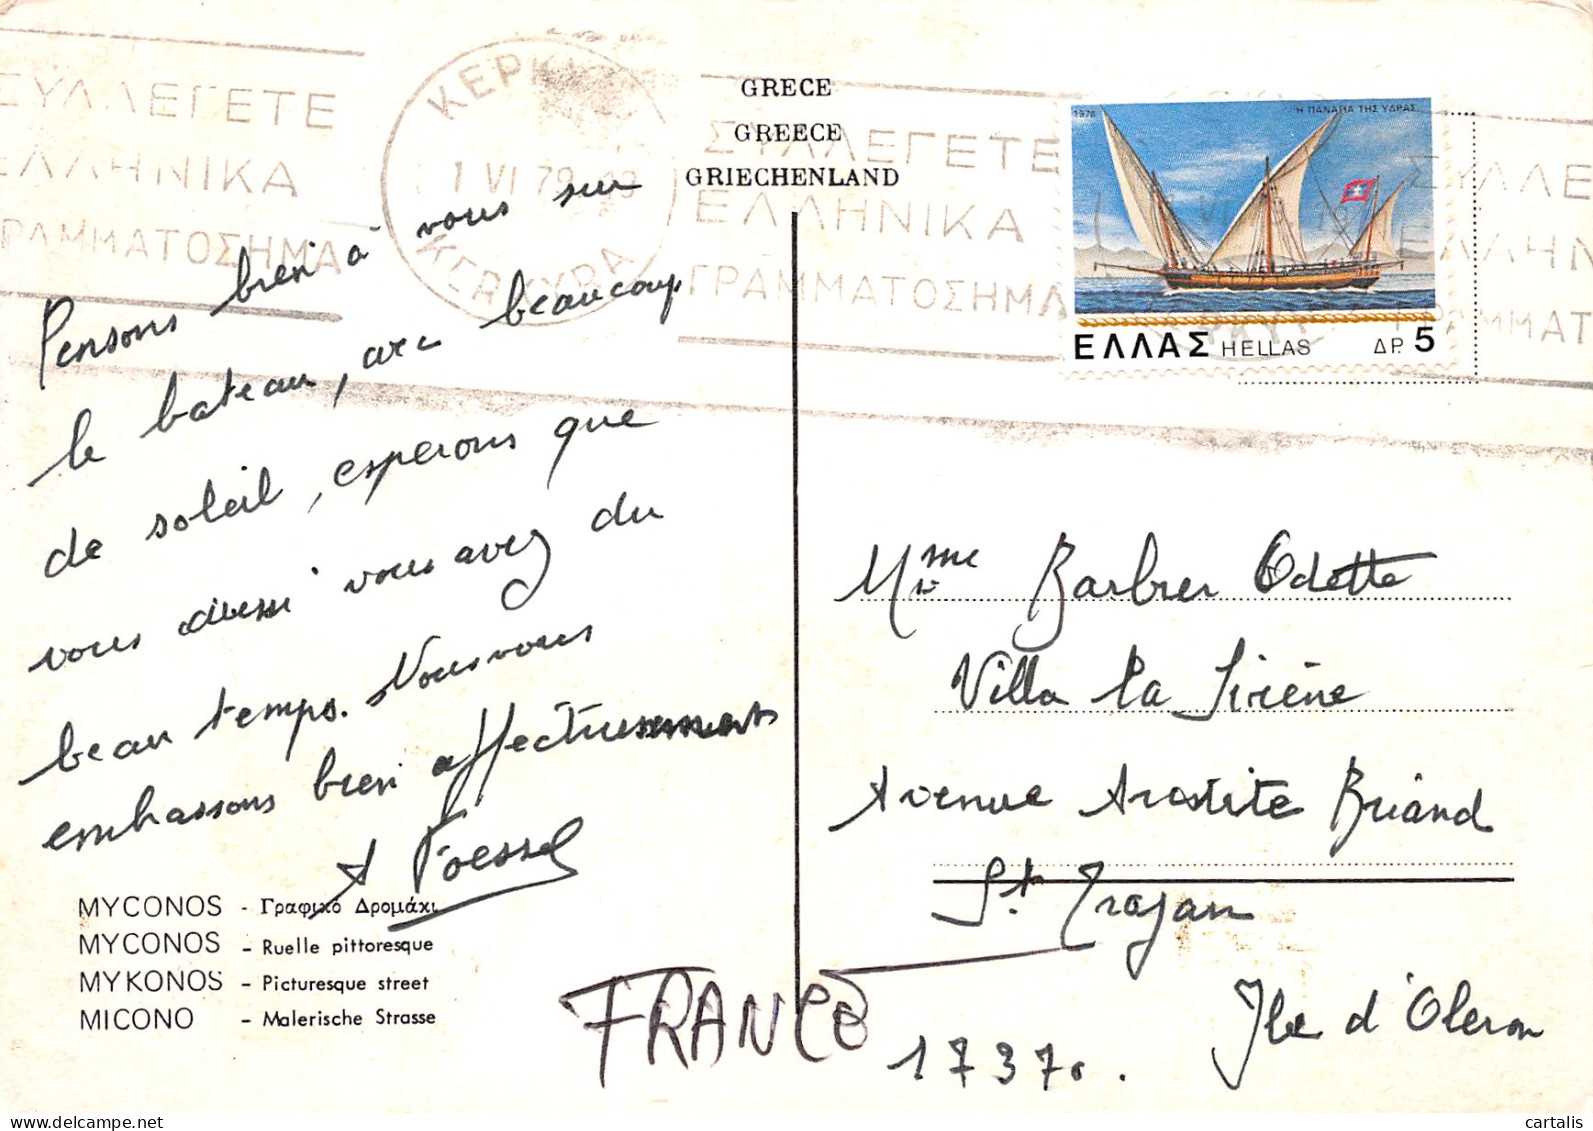 GRECE
GREECE
GRIECHENLAND
ΣΥΛΛΕΓΕΤΕ
ΕΛΛΗΝΙΚΑ
ΓΡΑΜΜΑΤΟΣΗΜΑ
ΚΕΡΚΥΡΑ
1 VI 79
ΚΕΡΚΥΡΑ
ΣΥΛΛΕΓΕΤΕ
ΕΛΛΗΝΙΚΑ
ΓΡΑΜΜΑΤΟΣΗΜΑ
1978 Η ΠΑΝΑΓΙΑ ΤΗΣ ΥΔΡΑΣ
ΕΛΛΑΣ HELLAS ΔΡ. 5
Pensons bien à vous sur
le bateau, avec beaucoup
de soleil, esperons que
vous aussi vous avez du
beau temps. Nous vous
embassons bien affectueusement
A Foessel
Mme Barbier Odette
Villa la Sirène
Avenue Arostite Briand
St. Trojan
Ile d'Oleron
17370.
FRANCE
MYCONOS - Γραφικό Δρομάκι
MYCONOS - Ruelle pittoresque
MYKONOS - Picturesque street
MICONO - Malerische Strasse
cartalis